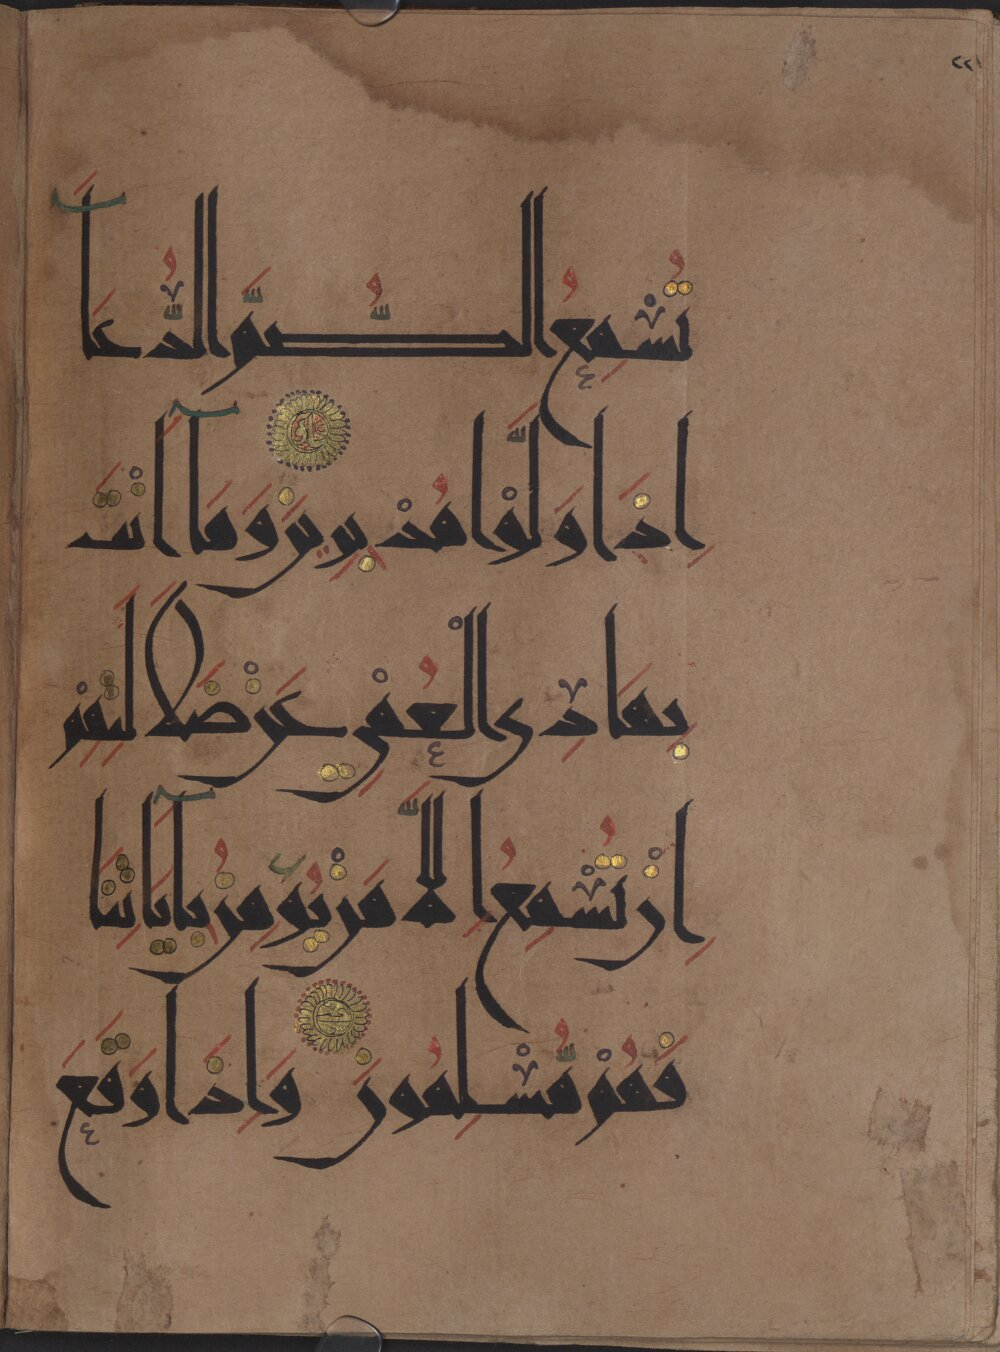 تُسْمِعُ الصُّمَّ الدُّعَآ
اِذَا وَلَّوْا مُدْبِرِينَ وَمَآ اَنْتَ
بِهَادِى الْعُمْىِ عَنْ ضَلَالَتِهِمْ
اِنْ تُسْمِعُ اِلَّا مَنْ يُؤْمِنُ بِاٰيَاتِنَا
فَهُمْ مُسْلِمُونَ وَاِذَا وَقَعَ